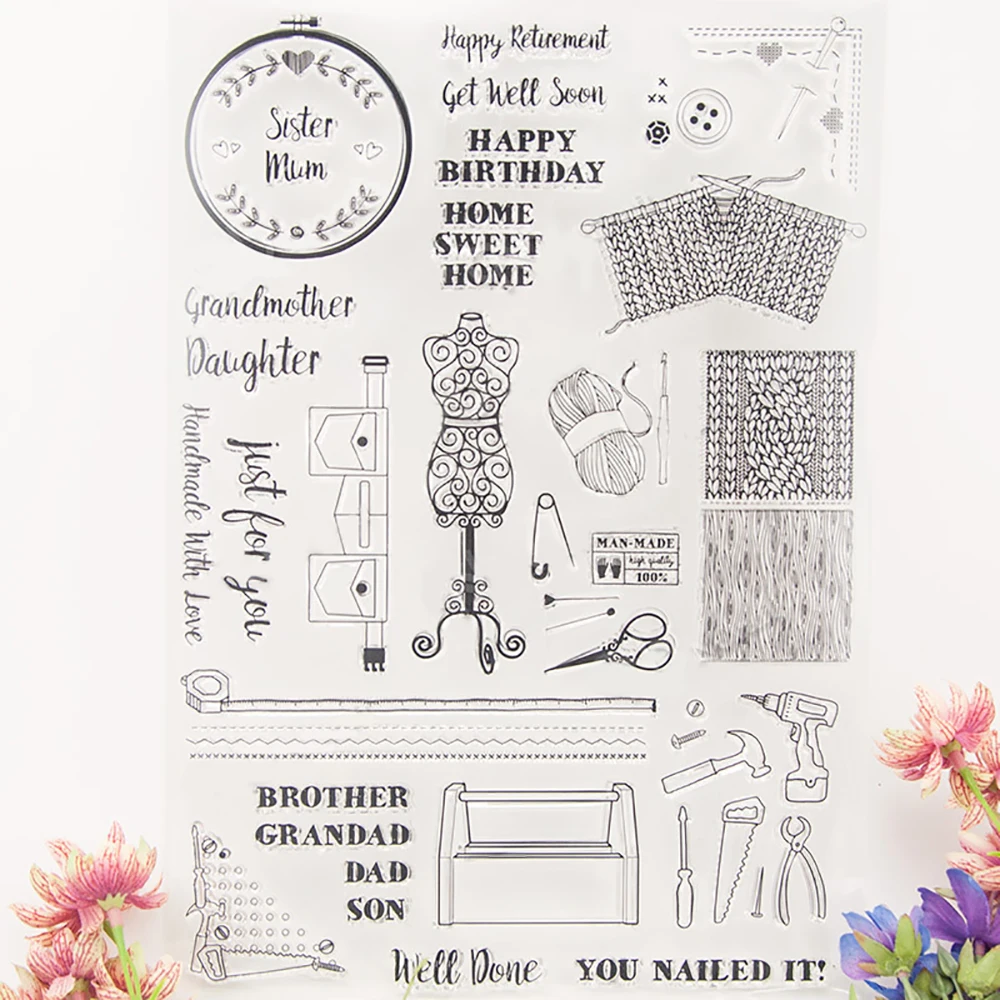 Sister
Mum
Happy Retirement
Get Well Soon
HAPPY
BIRTHDAY
HOME
SWEET
HOME
Grandmother
Daughter
Handmade With Love
just for you
MAN-MADE
high quality
100%
BROTHER
GRANDAD
DAD
SON
Well Done
YOU NAILED IT!